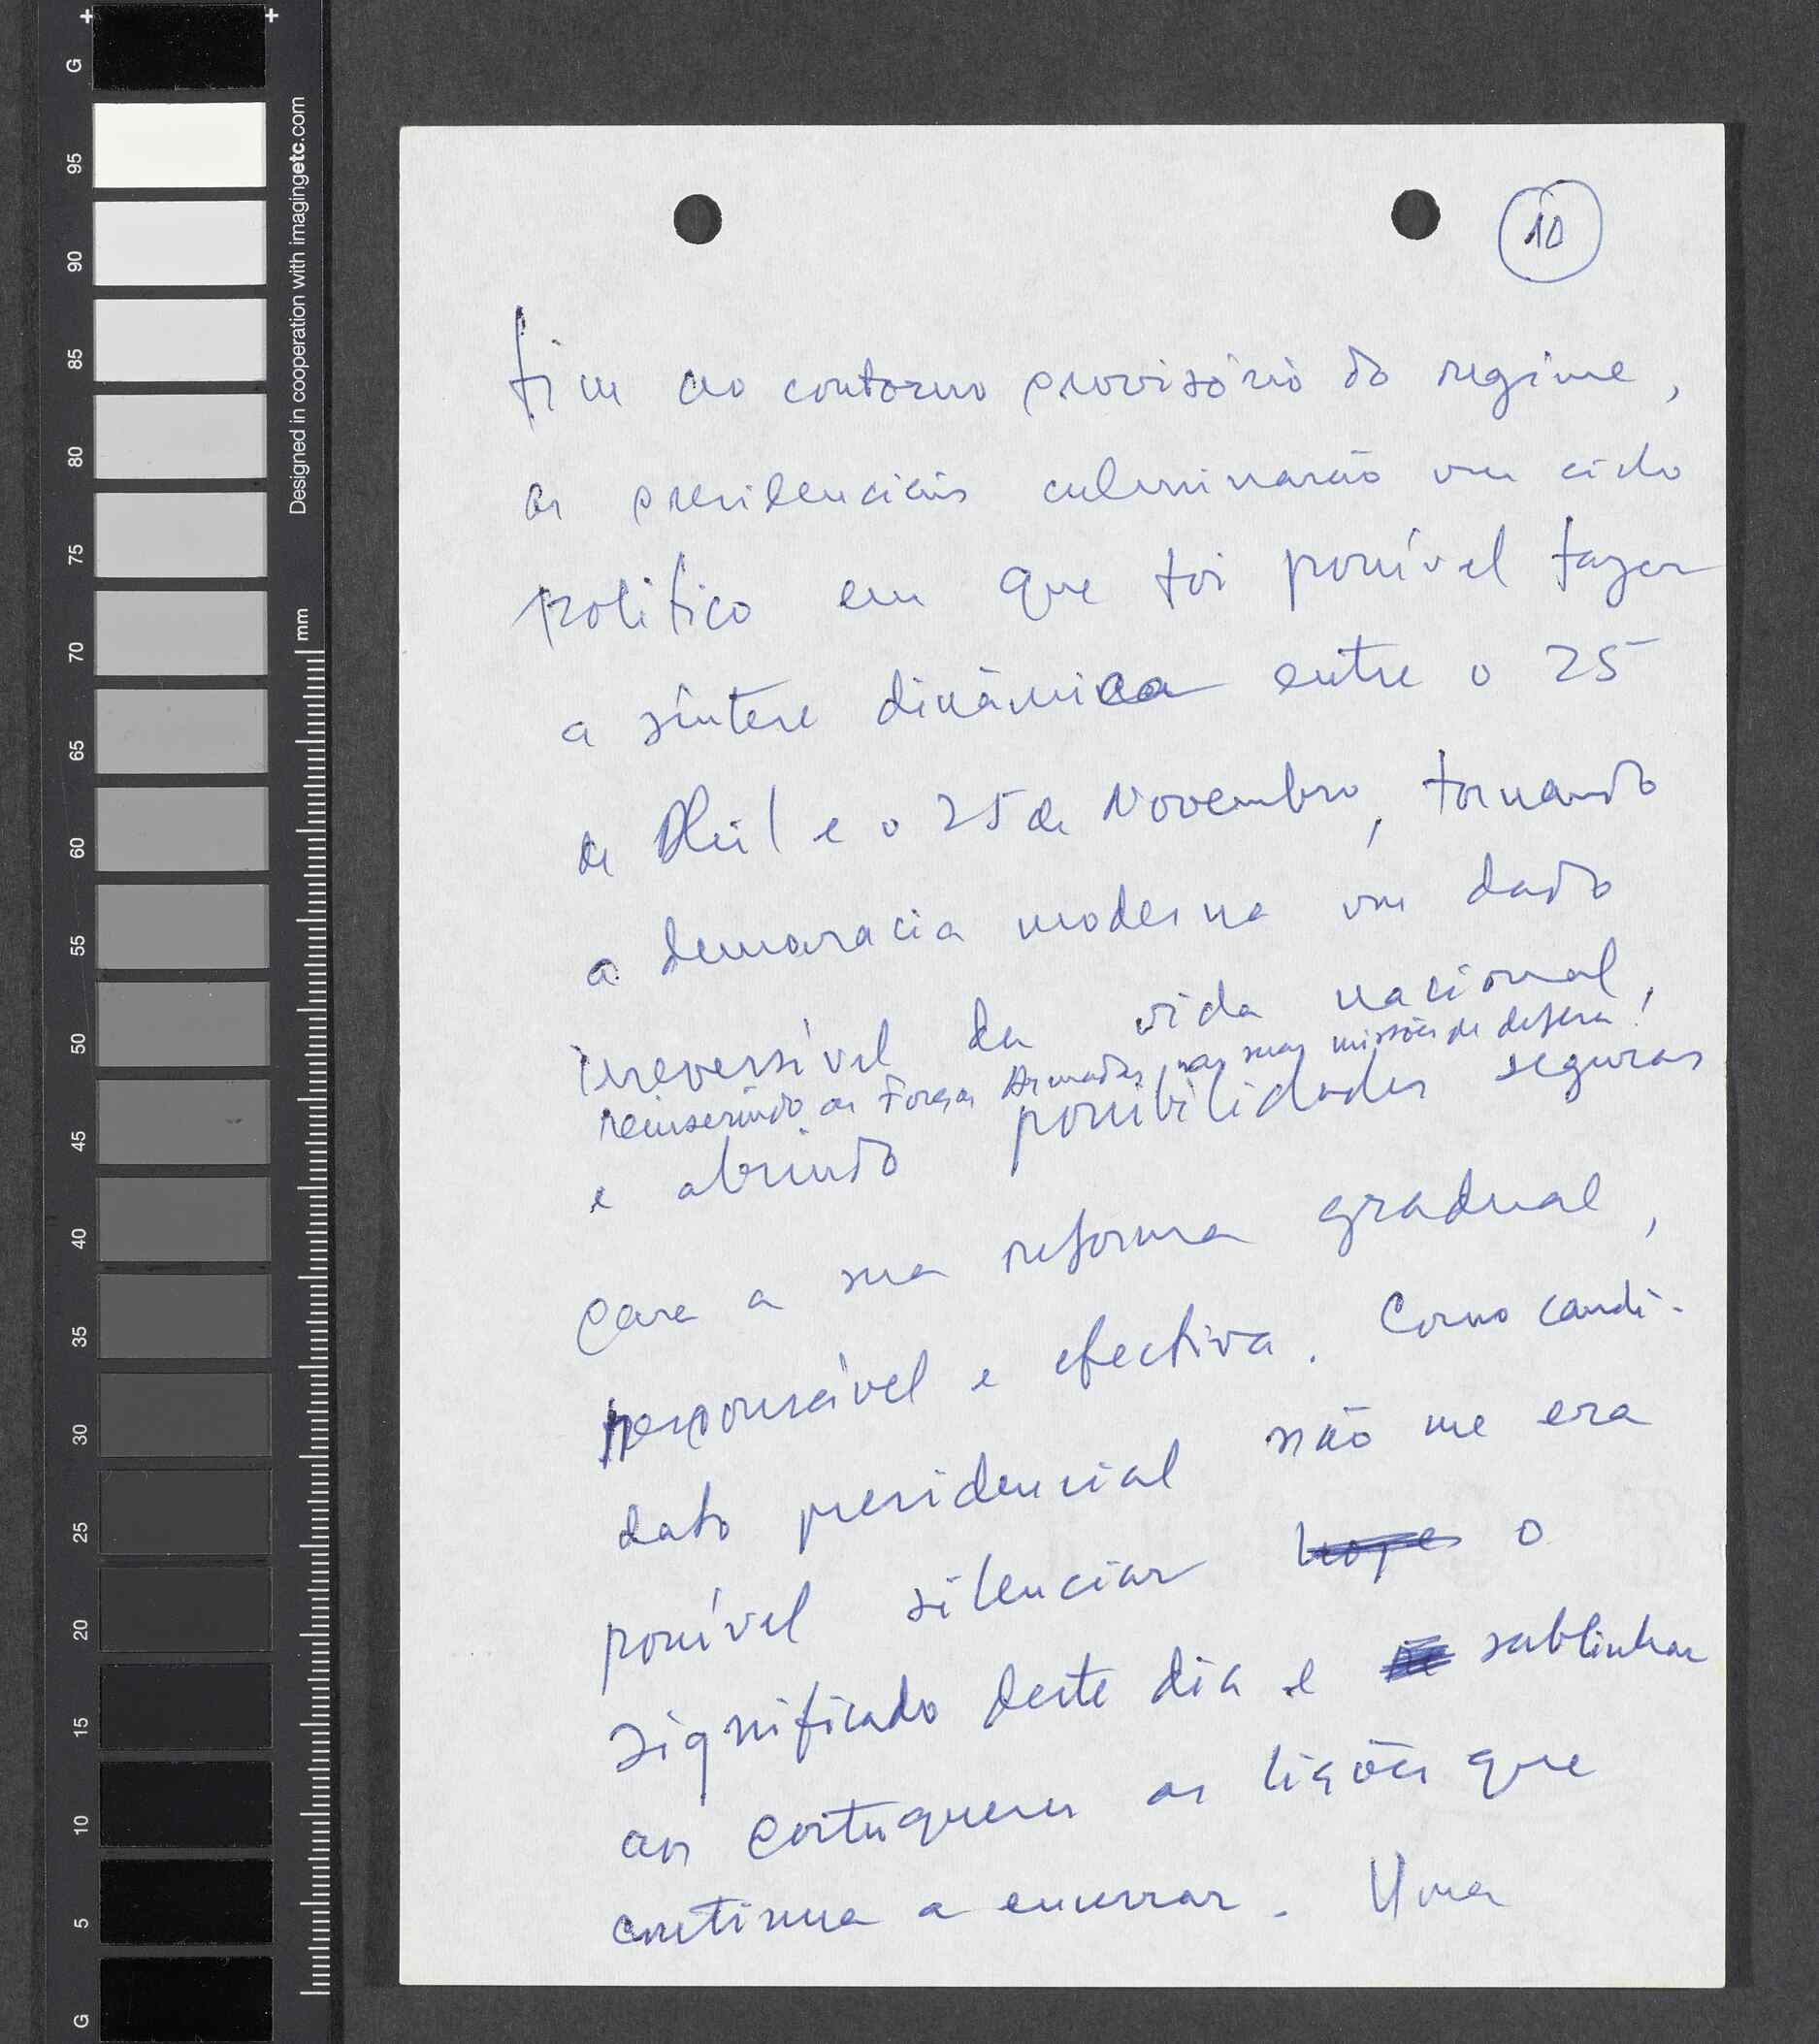 10
fim ao contorno provisório do regime,
as presidenciais culminarão um ciclo
político em que foi possível fazer
a síntese dinâmica entre o 25
de Abril e o 25 de Novembro, tornando
a democracia moderna um dado
irreversível da vida nacional,
reinserindo as Forças Armadas nas suas missões de defesa!
e abrindo possibilidades seguras
para a sua reforma gradual,
responsável e efectiva. Como candi-
dato presidencial não me era
possível silenciar hoje o
significado deste dia e sublinhar
aos portugueses as lições que
continua a encerrar. Uma
G
95
90
85
80
75
70
65
60
55
50
45
40
35
30
25
20
15
10
5
G
mm
Designed in cooperation with imagingetc.com